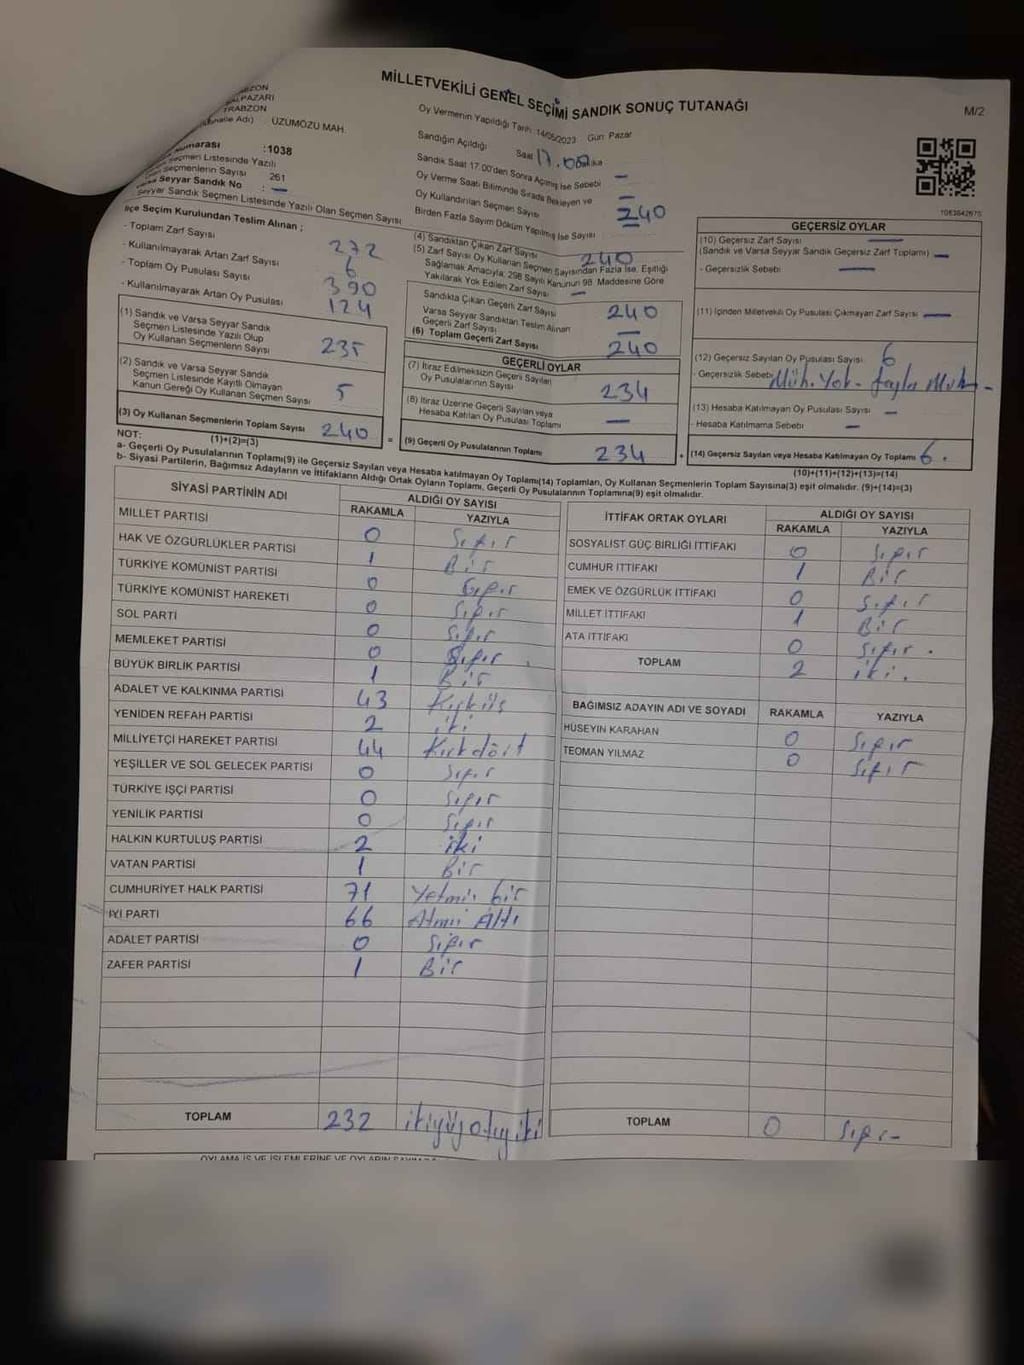 MİLLETVEKİLİ GENEL SEÇİMİ SANDIK SONUÇ TUTANAĞI
M/2
TRABZON
ÜZÜMÖZÜ MAH.
:1038
Seçmen Listesinde Yazılı
Seçmenlerin Sayısı 261
Varsa Seyyar Sandık No : —
Seyyar Sandık Seçmen Listesinde Yazılı Olan Seçmen Sayısı
Oy Vermenin Yapıldığı Tarih 14/05/2023 Gün Pazar
Sandığın Açıldığı Saat 17.00
Sandık Saat 17:00'den Sonra Açılmış İse Sebebi —
Oy Verme Saati Bitiminde Sırada Bekleyen ve
Oy Kullandırılan Seçmen Sayısı —
Birden Fazla Sayım Döküm Yapılmış İse Sayısı
240
1063842675
İlçe Seçim Kurulundan Teslim Alınan ;
- Toplam Zarf Sayısı 272
- Kullanılmayarak Artan Zarf Sayısı 6
- Toplam Oy Pusulası Sayısı 390
- Kullanılmayarak Artan Oy Pusulası 124
(1) Sandık ve Varsa Seyyar Sandık
Seçmen Listesinde Yazılı Olup
Oy Kullanan Seçmenlerin Sayısı 235
(2) Sandık ve Varsa Seyyar Sandık
Seçmen Listesinde Kayıtlı Olmayan
Kanun Gereği Oy Kullanan Seçmen Sayısı 5
(3) Oy Kullanan Seçmenlerin Toplam Sayısı 240
(1)+(2)=(3)
(4) Sandıktan Çıkan Zarf Sayısı 240
(5) Zarf Sayısı Oy Kullanan Seçmen Sayısından Fazla İse, Eşitliği
Sağlamak Amacıyla; 298 Sayılı Kanunun 98. Maddesine Göre
Yakılarak Yok Edilen Zarf Sayısı —
Sandıkta Çıkan Geçerli Zarf Sayısı 240
Varsa Seyyar Sandıktan Teslim Alınan
Geçerli Zarf Sayısı —
(6) Toplam Geçerli Zarf Sayısı 240
GEÇERLİ OYLAR
(7) İtiraz Edilmeksizin Geçerli Sayılan
Oy Pusulalarının Sayısı 234
(8) İtiraz Üzerine Geçerli Sayılan veya
Hesaba Katılan Oy Pusulası Toplamı —
= (9) Geçerli Oy Pusulalarının Toplamı 234 +
GEÇERSİZ OYLAR
(10) Geçersiz Zarf Sayısı —
(Sandık ve Varsa Seyyar Sandık Geçersiz Zarf Toplamı) —
- Geçersizlik Sebebi —
(11) İçinden Milletvekili Oy Pusulası Çıkmayan Zarf Sayısı —
(12) Geçersiz Sayılan Oy Pusulası Sayısı 6
- Geçersizlik Sebebi Müh. Yok -
(13) Hesaba Katılmayan Oy Pusulası Sayısı —
- Hesaba Katılmama Sebebi —
(14) Geçersiz Sayılan veya Hesaba Katılmayan Oy Toplamı 6.
(10)+(11)+(12)+(13)=(14)
NOT:
a- Geçerli Oy Pusulalarının Toplamı(9) ile Geçersiz Sayılan veya Hesaba katılmayan Oy Toplamı(14) Toplamları, Oy Kullanan Seçmenlerin Toplam Sayısına(3) eşit olmalıdır. (9)+(14)=(3)
b- Siyasi Partilerin, Bağımsız Adayların ve İttifakların Aldığı Ortak Oyların Toplamı, Geçerli Oy Pusulalarının Toplamına(9) eşit olmalıdır.
SİYASİ PARTİNİN ADI ALDIĞI OY SAYISI
RAKAMLA YAZIYLA
MİLLET PARTİSİ 0 Sıfır
HAK VE ÖZGÜRLÜKLER PARTİSİ 1 Bir
TÜRKİYE KOMÜNİST PARTİSİ 0 Sıfır
TÜRKİYE KOMÜNİST HAREKETİ 0 Sıfır
SOL PARTİ 0 Sıfır
MEMLEKET PARTİSİ 0 Sıfır
BÜYÜK BİRLİK PARTİSİ 1 Bir
ADALET VE KALKINMA PARTİSİ 43 Kırküç
YENİDEN REFAH PARTİSİ 2 iki
MİLLİYETÇİ HAREKET PARTİSİ 44 Kırkdört
YEŞİLLER VE SOL GELECEK PARTİSİ 0 Sıfır
TÜRKİYE İŞÇİ PARTİSİ 0 Sıfır
YENİLİK PARTİSİ 0 Sıfır
HALKIN KURTULUŞ PARTİSİ 2 iki
VATAN PARTİSİ 1 Bir
CUMHURİYET HALK PARTİSİ 71 Yetmiş bir
İYİ PARTİ 66 Atmış Altı
ADALET PARTİSİ 0 Sıfır
ZAFER PARTİSİ 1 Bir
TOPLAM 232 ikiyüzotuziki
İTTİFAK ORTAK OYLARI ALDIĞI OY SAYISI
RAKAMLA YAZIYLA
SOSYALİST GÜÇ BİRLİĞİ İTTİFAKI 0 Sıfır
CUMHUR İTTİFAKI 1 Bir
EMEK VE ÖZGÜRLÜK İTTİFAKI 0 Sıfır
MİLLET İTTİFAKI 1 Bir
ATA İTTİFAKI 0 Sıfır.
TOPLAM 2 iki.
BAĞIMSIZ ADAYIN ADI VE SOYADI RAKAMLA YAZIYLA
HÜSEYİN KARAHAN 0 Sıfır
TEOMAN YILMAZ 0 Sıfır
TOPLAM 0 Sıfır-